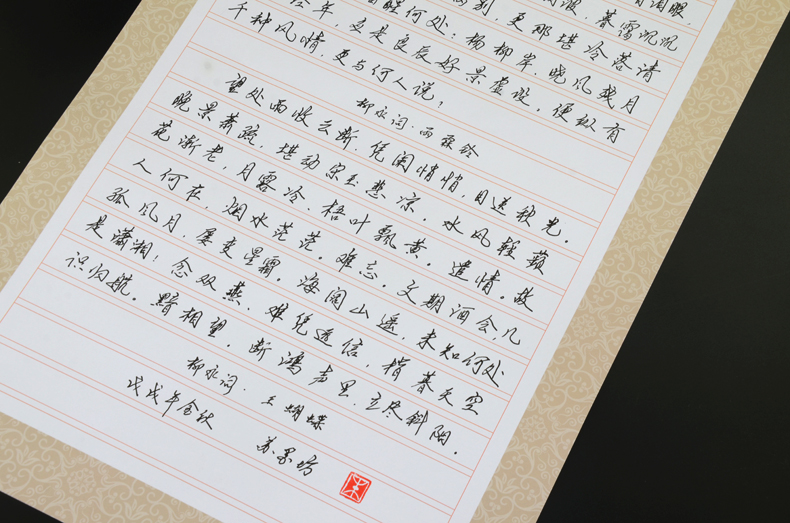 泪眼
波，暮霭沉沉
别，更那堪冷落清
醒何处：杨柳岸、晓风残月
经年，应是良辰好景虚设，便纵有
千种风情，更与何人说！
柳永词·雨霖铃
望处雨收云断，凭阑悄悄，目送秋光。
晚景萧疏，堪动宋玉悲凉，水风轻蘋
花渐老，月露冷、梧叶飘黄。遣情。故
人何在，烟水茫茫。难忘，文期酒会，几
孤风月，屡变星霜。海阔山遥，未知何处
是潇湘！念双燕、难凭远信，指暮天空
识归航。黯相望，断鸿声里，立尽斜阳。
柳永词·玉蝴蝶
戊戌年金秋
苏墨坊